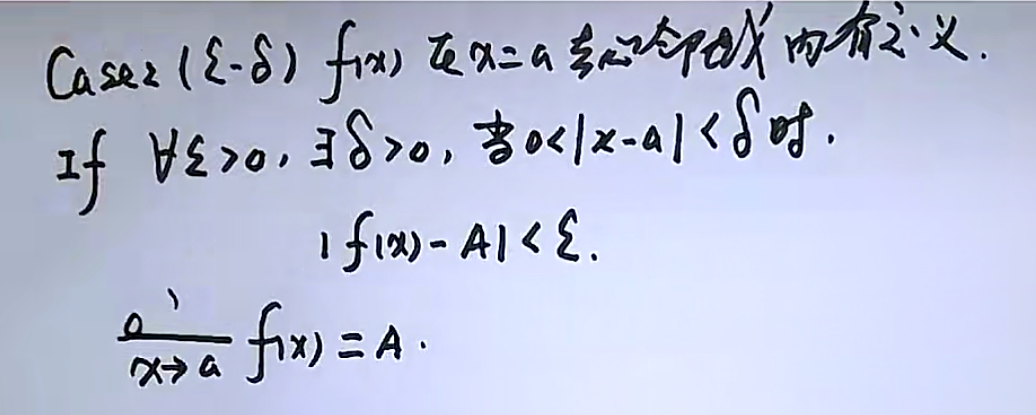 Case2 (ε-δ) f(x) 在 x=a 去心邻域内有定义.
If ∀ε>0, ∃δ>0, 当 0<|x-a|<δ 时.
|f(x)-A|<ε.
x→a f(x)=A.